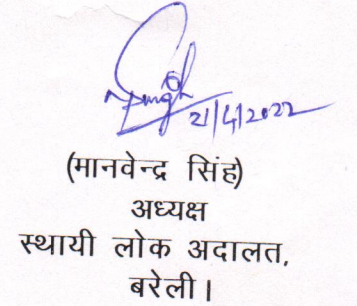 21/4/2022
(मानवेन्द्र सिंह)
अध्यक्ष
स्थायी लोक अदालत,
बरेली।